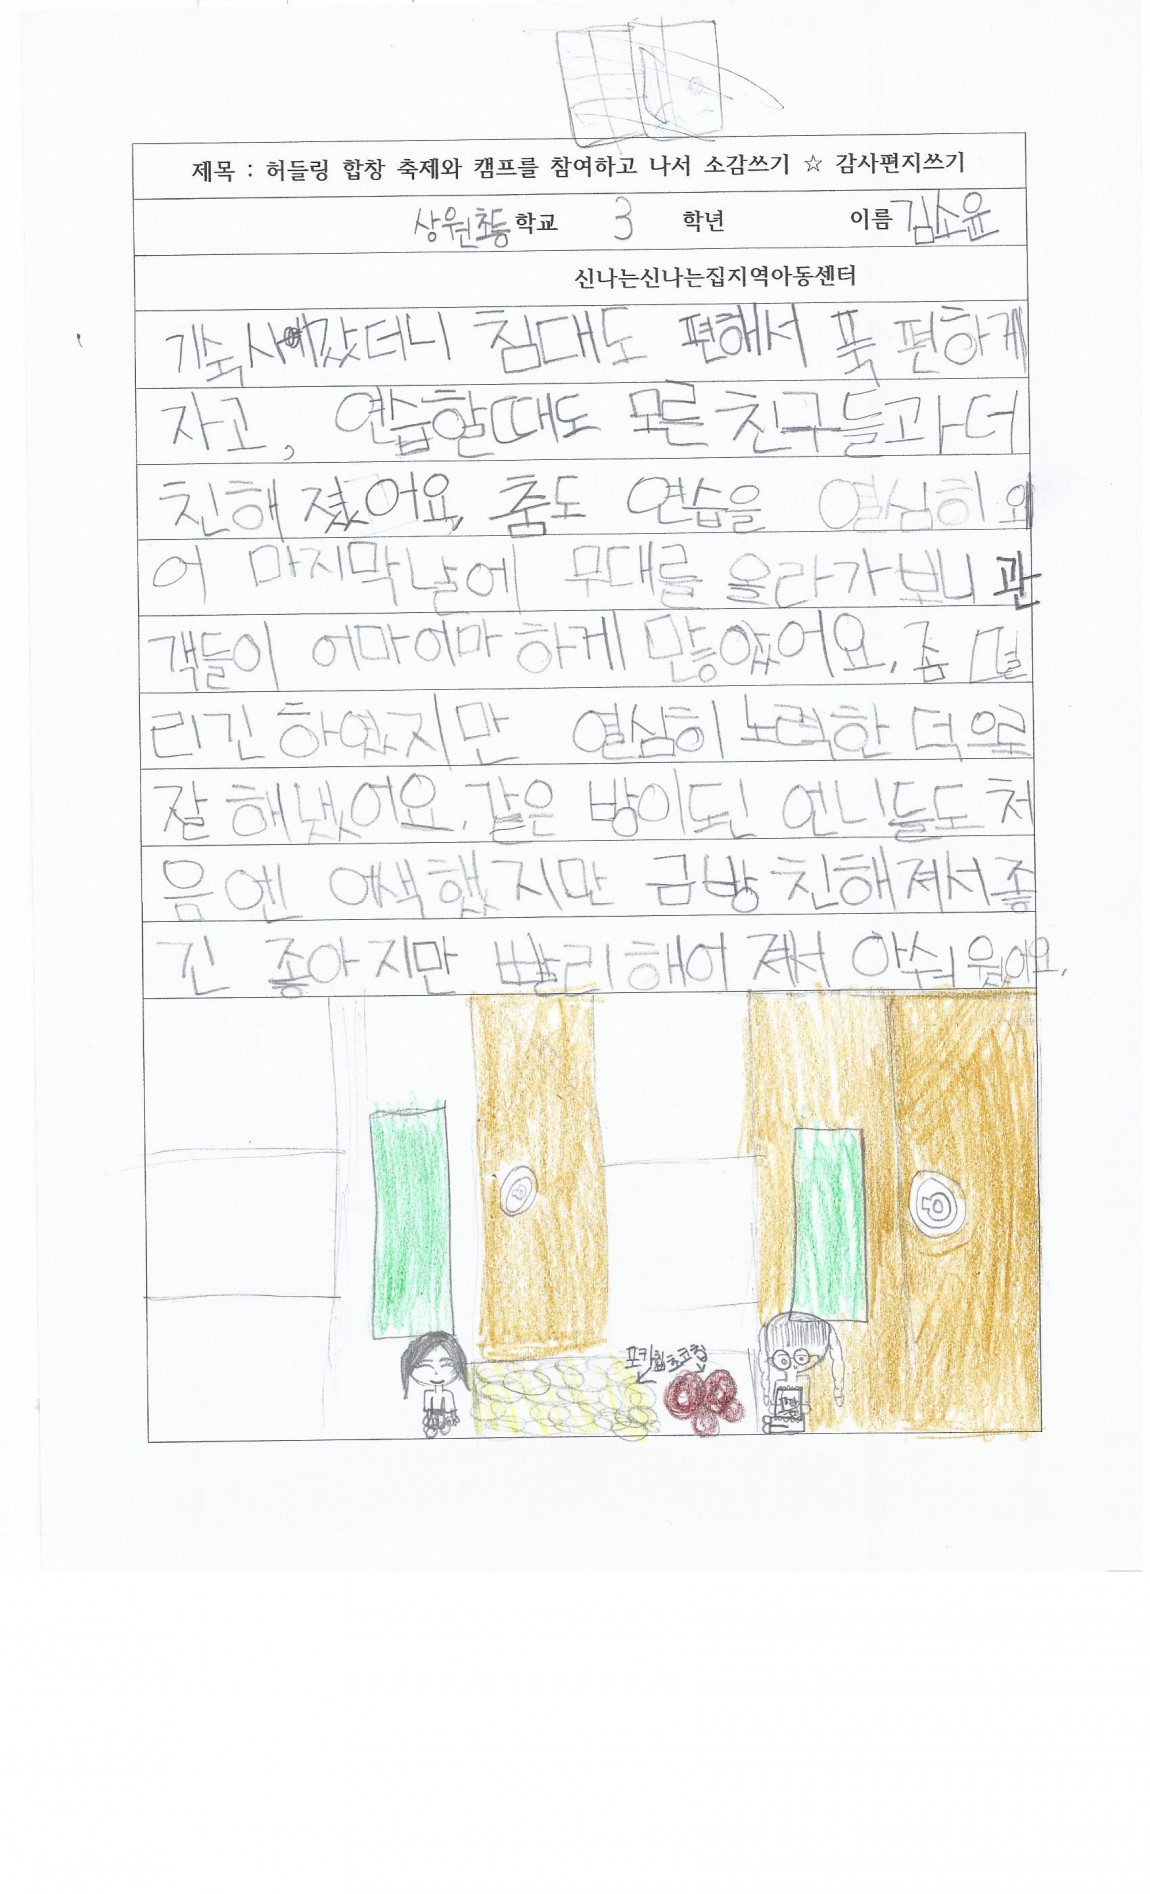 제목 : 허들링 합창 축제와 캠프를 참여하고 나서 소감쓰기 ☆ 감사편지쓰기
상원초등학교 3 학년 이름 김소윤
신나는신나는집지역아동센터
기숙사에갔더니 침대도 편해서 푹 편하게
자고, 연습할때도 모른 친구들과 더
친해졌어요, 춤도 연습을 열심히 외
어 마지막날에 무대를 올라가보니 관
객들이 어마어마하게 많았어요. 좀 떨
리긴 하였지만 열심히 노력한 덕으로
잘 해냈어요. 같은 방이된 언니들도 처
음엔 어색했지만 금방 친해져서 좋
긴 좋아지만 빨리 해어져서 아쉬웠어요.
포카칩 초코칩